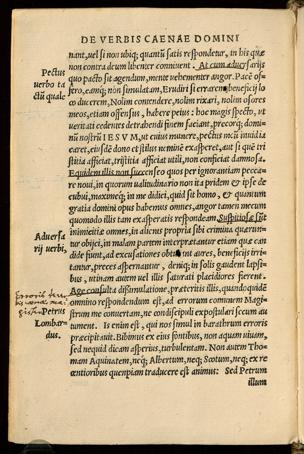 DE VERBIS CAENAE DOMINI
nant, uel si non ubiq; quantũ satis respondetur, in his quæ
non contra deum libenter conniuent. At cum aduersarijs
Pectus
uerbo ta
ctũ quale
quo pacto sit agendum, mente uehementer angor. Pacē
eamq; non simulatam, Eruditi si errarem beneficij lo
co ducerem, Nolim contendere, nolim rixari, nolim osores
meos, etiam offensus, habere peius: hoc magis specto, ut
ueritati cedentes detrahendi finem faciant, precorq; domi-
nũ nostrũ IESVM, ut eius munere, pectus meũ inuidia
caret, eiusdē dono et stilus neminē exasperet, aut si quē tri
stitia afficiat, tristitia afficiat utili, non conficiat damnosa.
Equidem illis non succenseo quos per ignorantiam pecca-
re noui, in quorum ualitudinario non ita pridem & ipse de
cubui, maxumeq; in me didici, quid sit homo, & quantum
gratia domini opus habemus omnes, angor tamen mecum
quomodo illis tam exasperatis respondeam. Suspitiosæ sũt
inimicitiæ omnes, in alienos propria sibi crimina quærun-
Aduersa
rij uerbi,
tur obijci, in malam partem interpretantur etiam quæ can
dide fiunt, ad excusationes obturant aures, beneficijs irri-
tantur, preces aspernantur, deniq; in solis gaudent lapsi-
bus, utinam autem uel illis satiati placidiores fierent.
Age consulta dissimulatione, præteritis illis, quando quidē
omnino respondendum est, ad errorum communem Magi
Petrus
Lombar-
dus.
strum me conuertam, ne condiscipuli expostulari secum au
tument. Is enim est, qui nos simul in barathrum erroris
præcipitauit. Bibimus ex eius fontibus, non aquam uiuam,
sed nequid dicam asperius, turbulentam. Non autem Tho-
mam Aquinatem, neq; Albertum, neq; Scotum, neq; ex re
centioribus quenpiam traducere est animus: Sed Petrum
illum